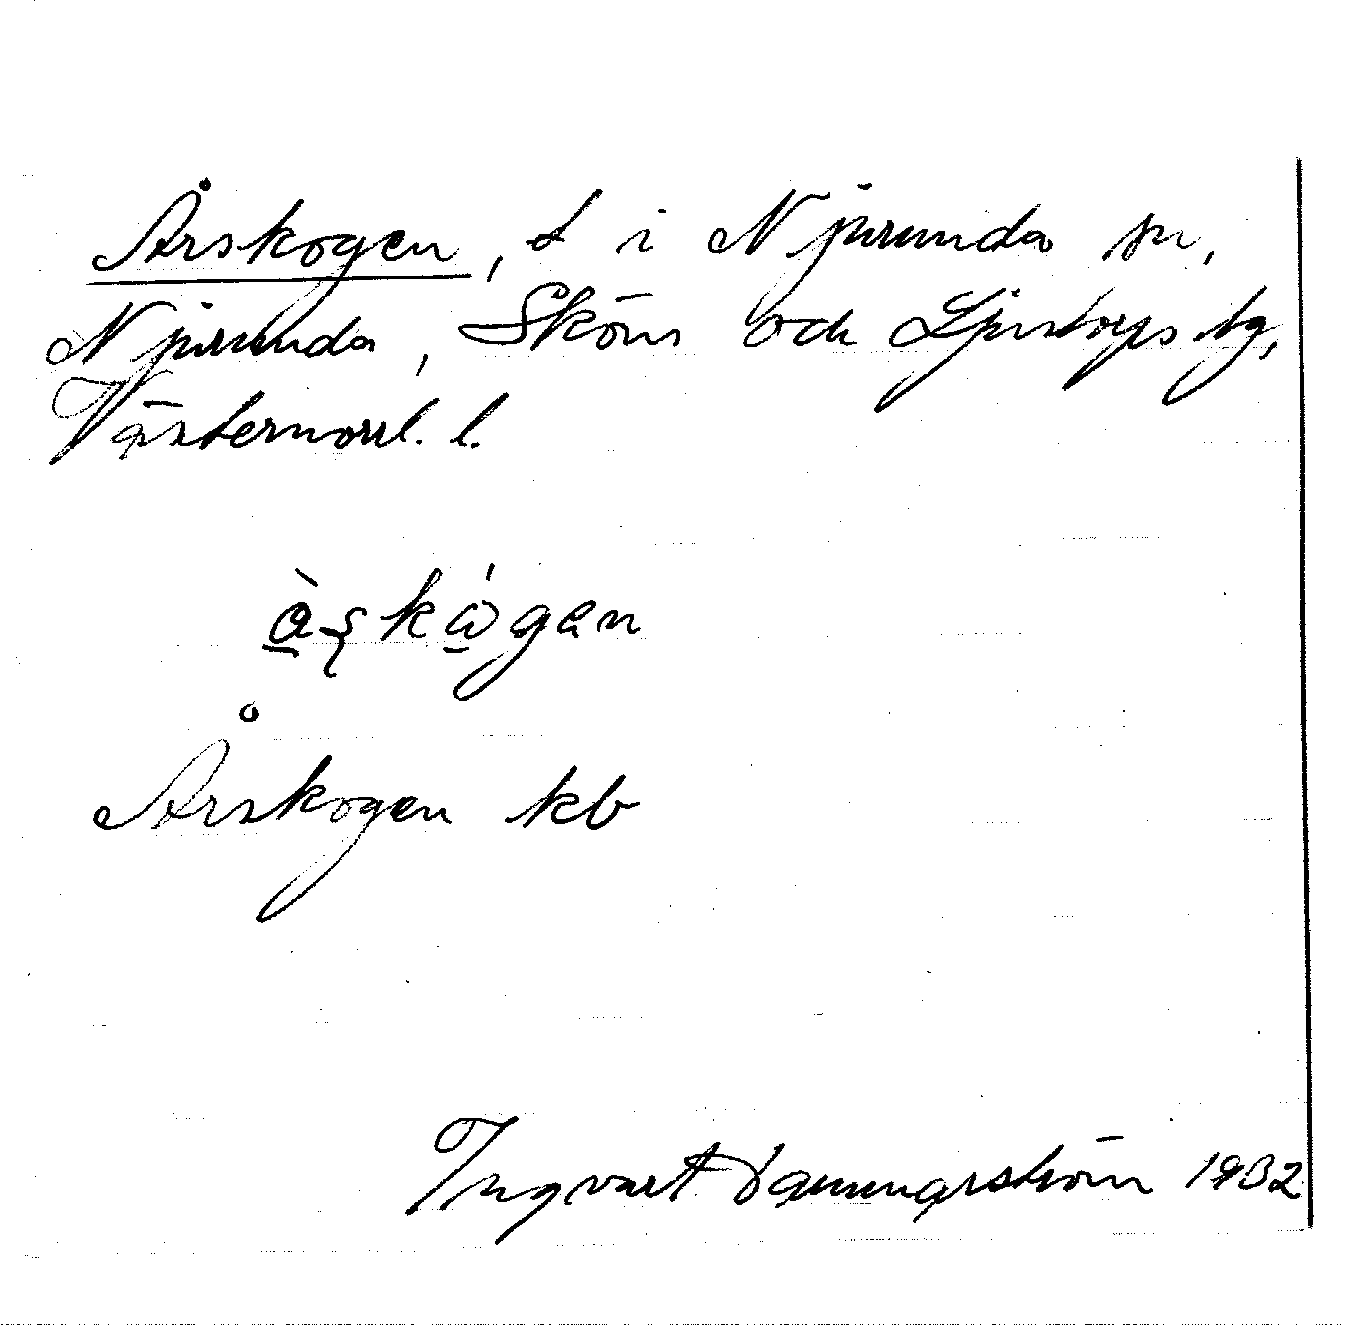 Årskogen, t i Njurunda sn,
Njurunda, Sköns och Ljustorps tg,
Västernorrl. l.
Årskogen kb
Ingvart Dammarström 1932